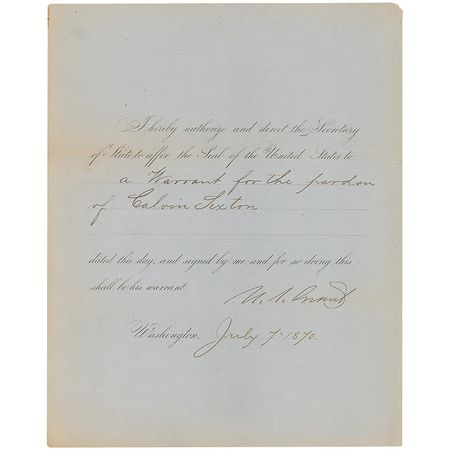 I hereby authorize and direct the Secretary
of State to affix the Seal of the United States to
a Warrant for the pardon
of Calvin Sexton
dated this day, and signed by me, and for so doing this
shall be his warrant.
U. S. Grant
Washington, July 7th 1870.